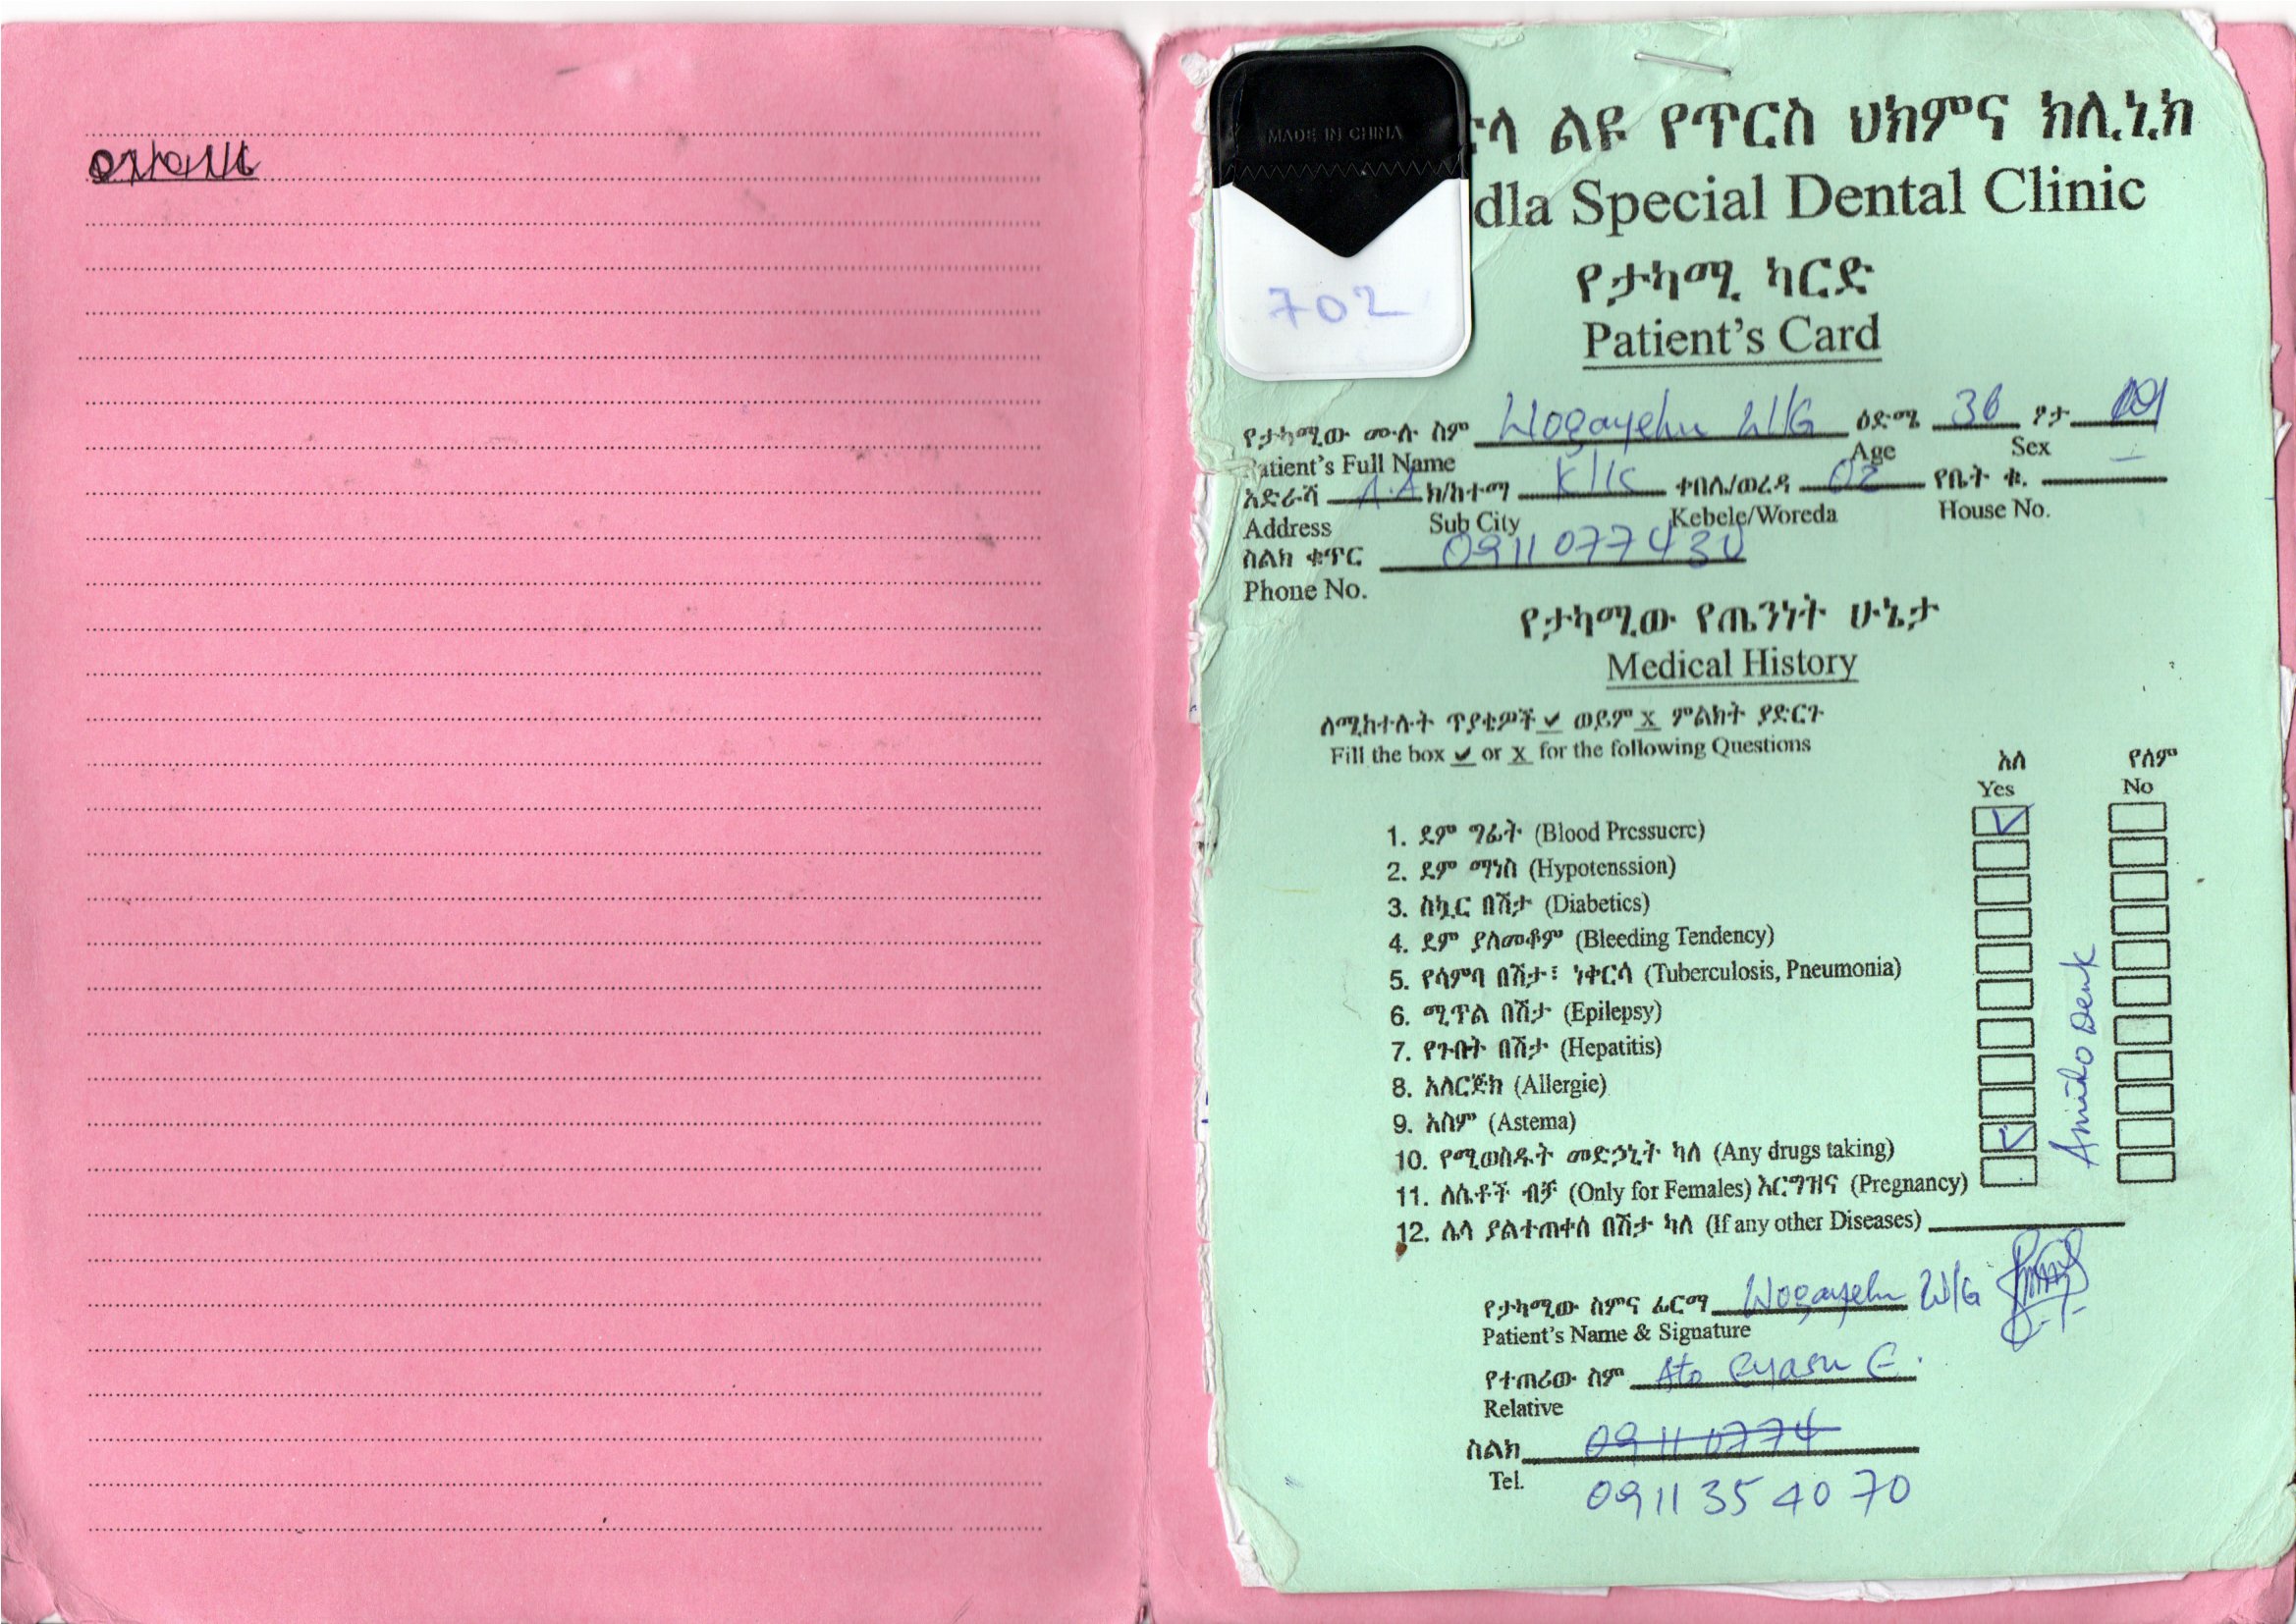 MADE IN CHINA
702
ላ ልዩ የጥርስ ህክምና ክሊኒክ
dla Special Dental Clinic
የታካሚ ካርድ
Patient's Card
የታካሚው ሙሉ ስም Wogayehu W/G ዕድሜ 36 ፆታ
Patient's Full Name Age Sex
አድራሻ A.A ክ/ከተማ K/K ቀበሌ/ወረዳ 02 የቤት ቁ. –
Address Sub City Kebele/Woreda House No.
ስልክ ቁጥር 0911077430
Phone No.
የታካሚው የጤንነት ሁኔታ
Medical History
ለሚከተሉት ጥያቄዎች ✔ ወይም X ምልክት ያድርጉ
Fill the box ✔ or X for the following Questions
አለ የለም
Yes No
1. ደም ግፊት (Blood Pressuere) ✓
2. ደም ማነስ (Hypotenssion)
3. ስኳር በሽታ (Diabetics)
4. ደም ያለመቆም (Bleeding Tendency)
5. የሳምባ በሽታ፣ ነቀርሳ (Tuberculosis, Pneumonia)
6. ሚጥል በሽታ (Epilepsy)
7. የጉበት በሽታ (Hepatitis)
8. አለርጅክ (Allergie)
9. አስም (Astema)
10. የሚወስዱት መድኃኒት ካለ (Any drugs taking) ✓
11. ለሴቶች ብቻ (Only for Females) እርግዝና (Pregnancy)
12. ሌላ ያልተጠቀሰ በሽታ ካለ (If any other Diseases)
የታካሚው ስምና ፊርማ Wogayehu W/G
Patient's Name & Signature
የተጠሪው ስም Ato Eyasu E.
Relative
ስልክ 09110774
Tel. 0911354070